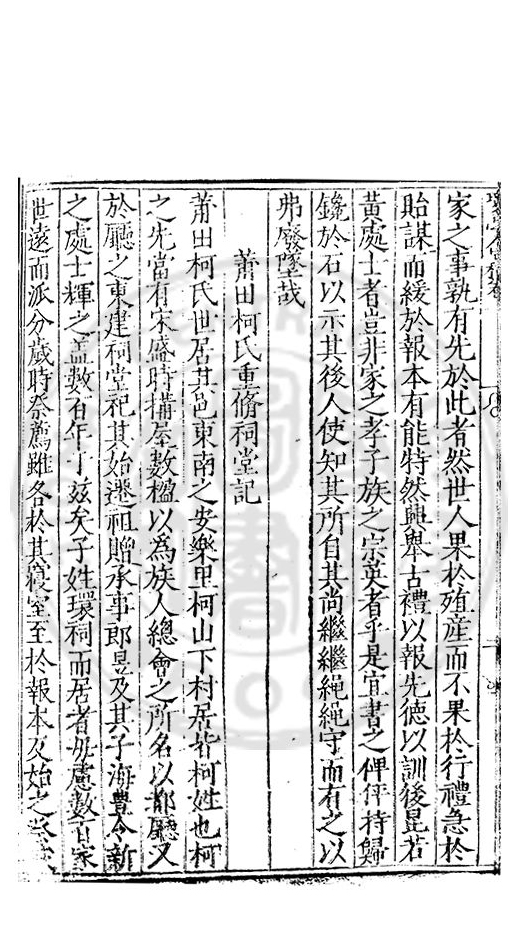 家之事孰有先於此者然世人果於殖産而不果於行禮急於
貽謀而緩於報本有能特然興舉古禮以報先德以訓後昆若
黄處士者豈非家之孝子族之宗英者乎是宜書之俾伻持歸
鑱於石以示其後人使知其所自其尚繼繼繩繩守而有之以
弗廢墜哉
莆田柯氏重脩祠堂記
莆田柯氏世居其邑東南之安樂里柯山下村居皆柯姓也柯
之先當有宋盛時搆屋數楹以為族人總會之所名以都廳又
於廳之東建祠堂祀其始遷祖贈承事郎昱及其子海豊令新
之處士輝之盖數百年于兹矣子姓環祠而居者毋慮數百家
世遠而派分歲時祭薦雖各於其寢室至於報本反始之